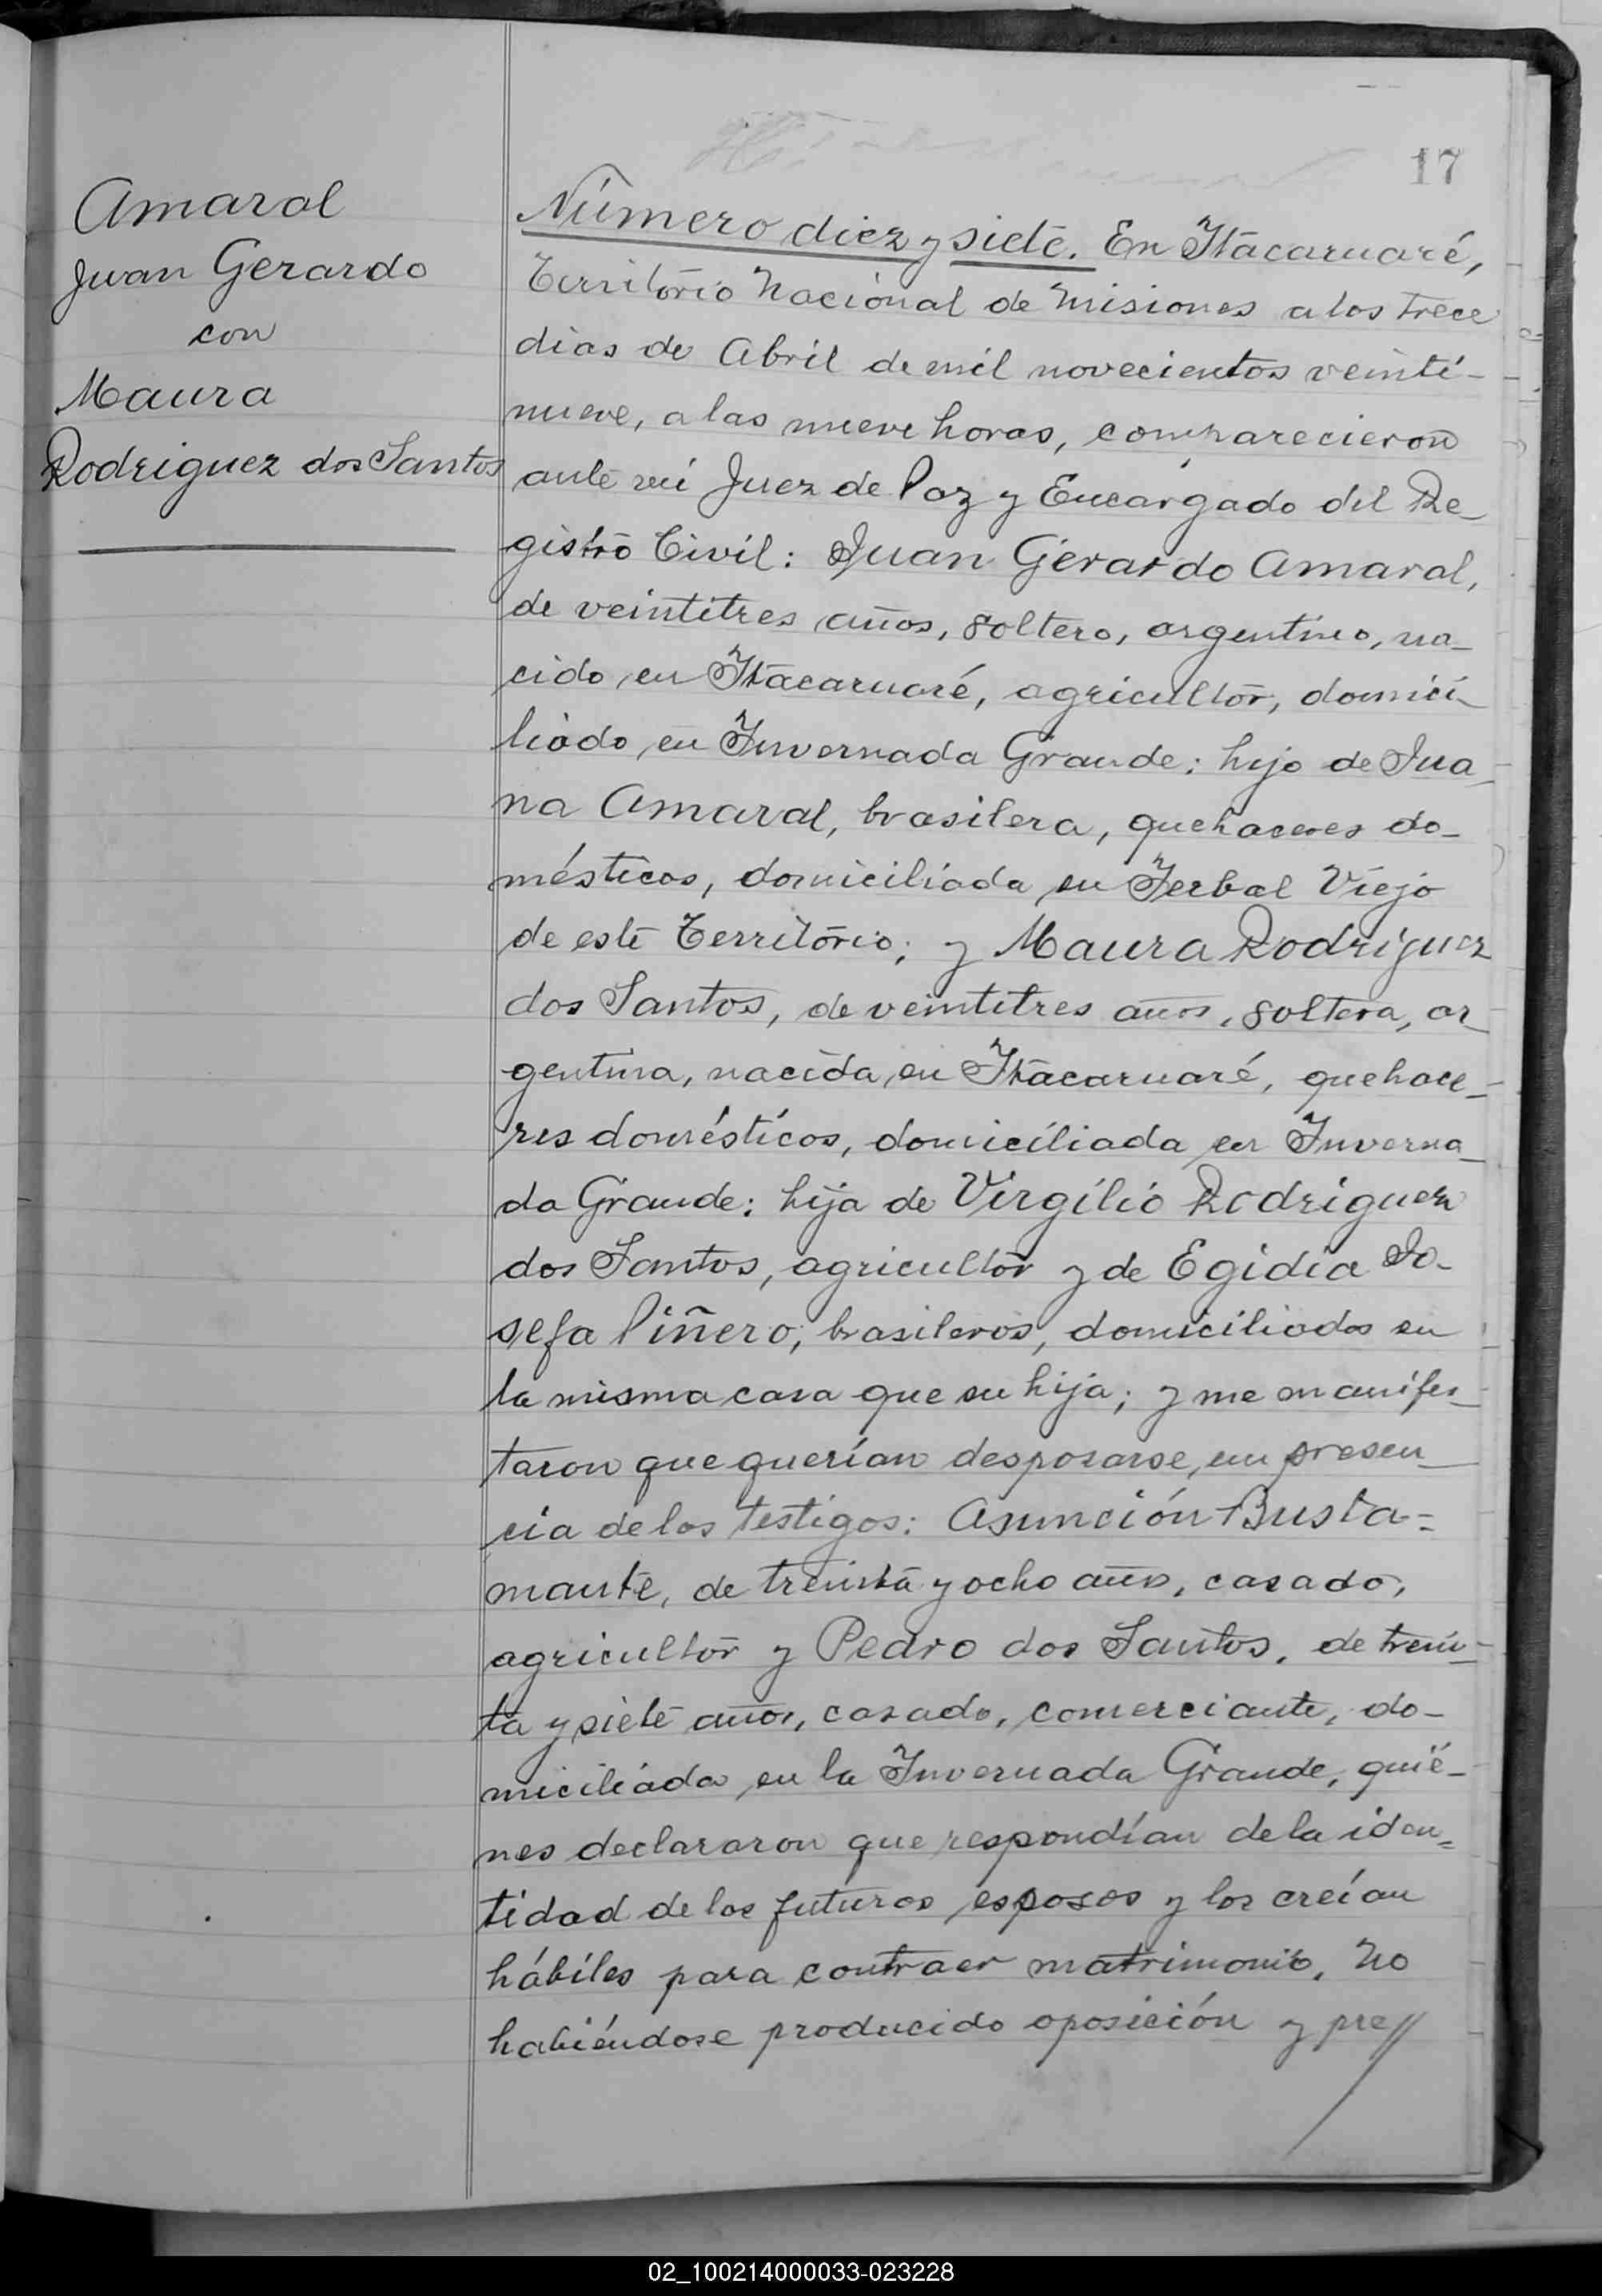 17
Amaral
Juan Gerardo
con
Maura
Rodriguez dos Santos
Número diez y siete. En Itacaruaré,
Territorio Nacional de Misiones a los trece
dias de Abril de mil novecientos veinti-
nueve, a las nueve horas, comparecieron
ante mi Juez de Paz y Encargado del Re-
gistro Civil: Juan Gerardo Amaral,
de veintitres años, soltero, argentino, na-
cido en Itacaruaré, agricultor, domici-
liado en Invernada Grande; hijo de Jua-
na Amaral, brasilera, quehaceres do-
mésticos, domiciliada en Yerbal Viejo
de este Territorio; y Maura Rodriguez
dos Santos, de veintitres años, soltera, ar-
gentina, nacida en Itacaruaré, quehace-
res domésticos, domiciliada en Inverna-
da Grande; hija de Virgilio Rodriguez
dos Santos, agricultor y de Egidia Jo-
sefa Piñero, brasileros, domiciliados en
la misma casa que su hija; y me manifes-
taron que querían desposarse, en presen-
cia de los testigos: Asunción Busta=
mante, de treinta y ocho años, casado,
agricultor y Pedro dos Santos, de trein-
ta y siete años, casado, comerciante, do-
miciliados en la Invernada Grande, quié-
nes declararon que respondían de la iden=
tidad de los futuros esposos y los creían
hábiles para contraer matrimonio. No
habiéndose producido oposición y pre//
02_100214000033-023228